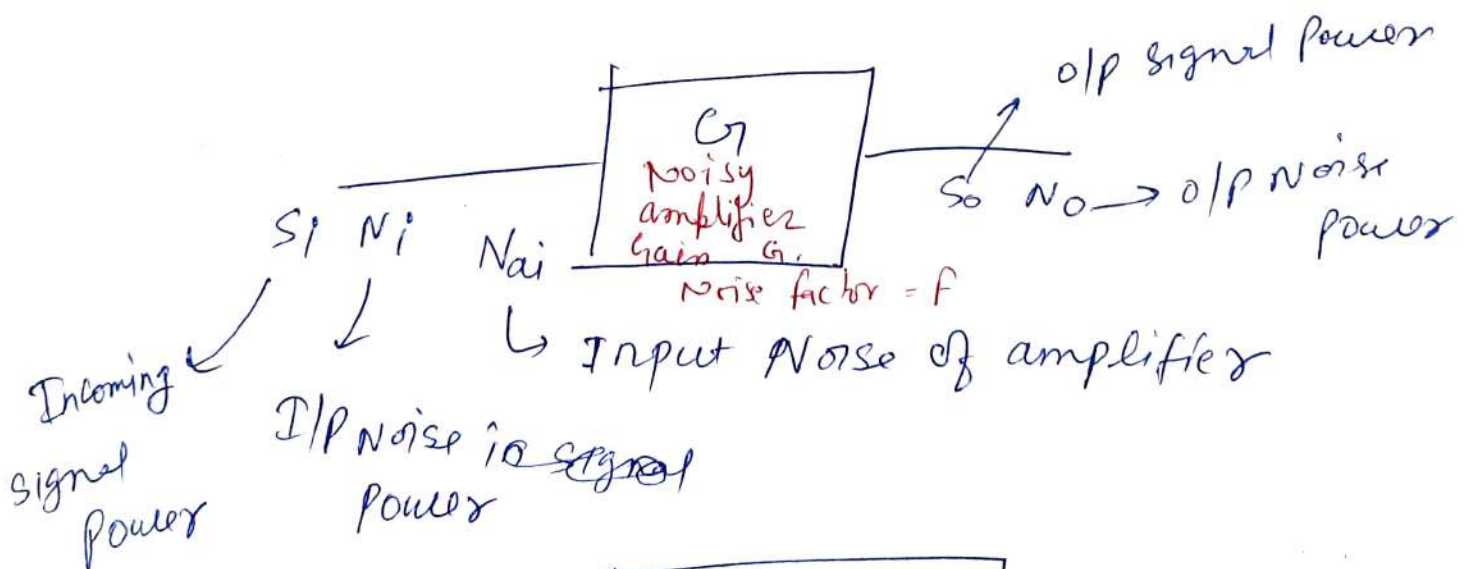 o/p signal Power
G
Noisy
amplifier
Gain G.
Noise factor = F
So No → o/p Noise
Power
Si Ni Nai
↳ Input Noise of amplifier
Incoming
signal
Power
I/P Noise
Power